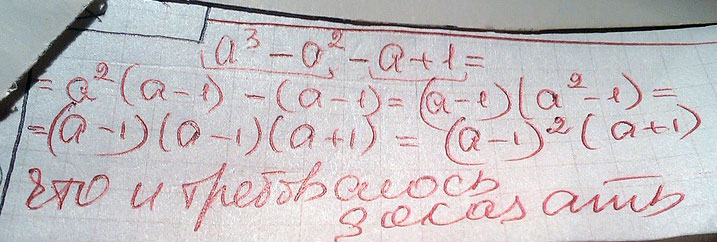 a³ - a² - a + 1 =
= a² (a - 1) - (a - 1) = (a - 1) (a² - 1) =
= (a - 1) (a - 1) (a + 1) = (a - 1)² (a + 1)
Что и требовалось
доказать